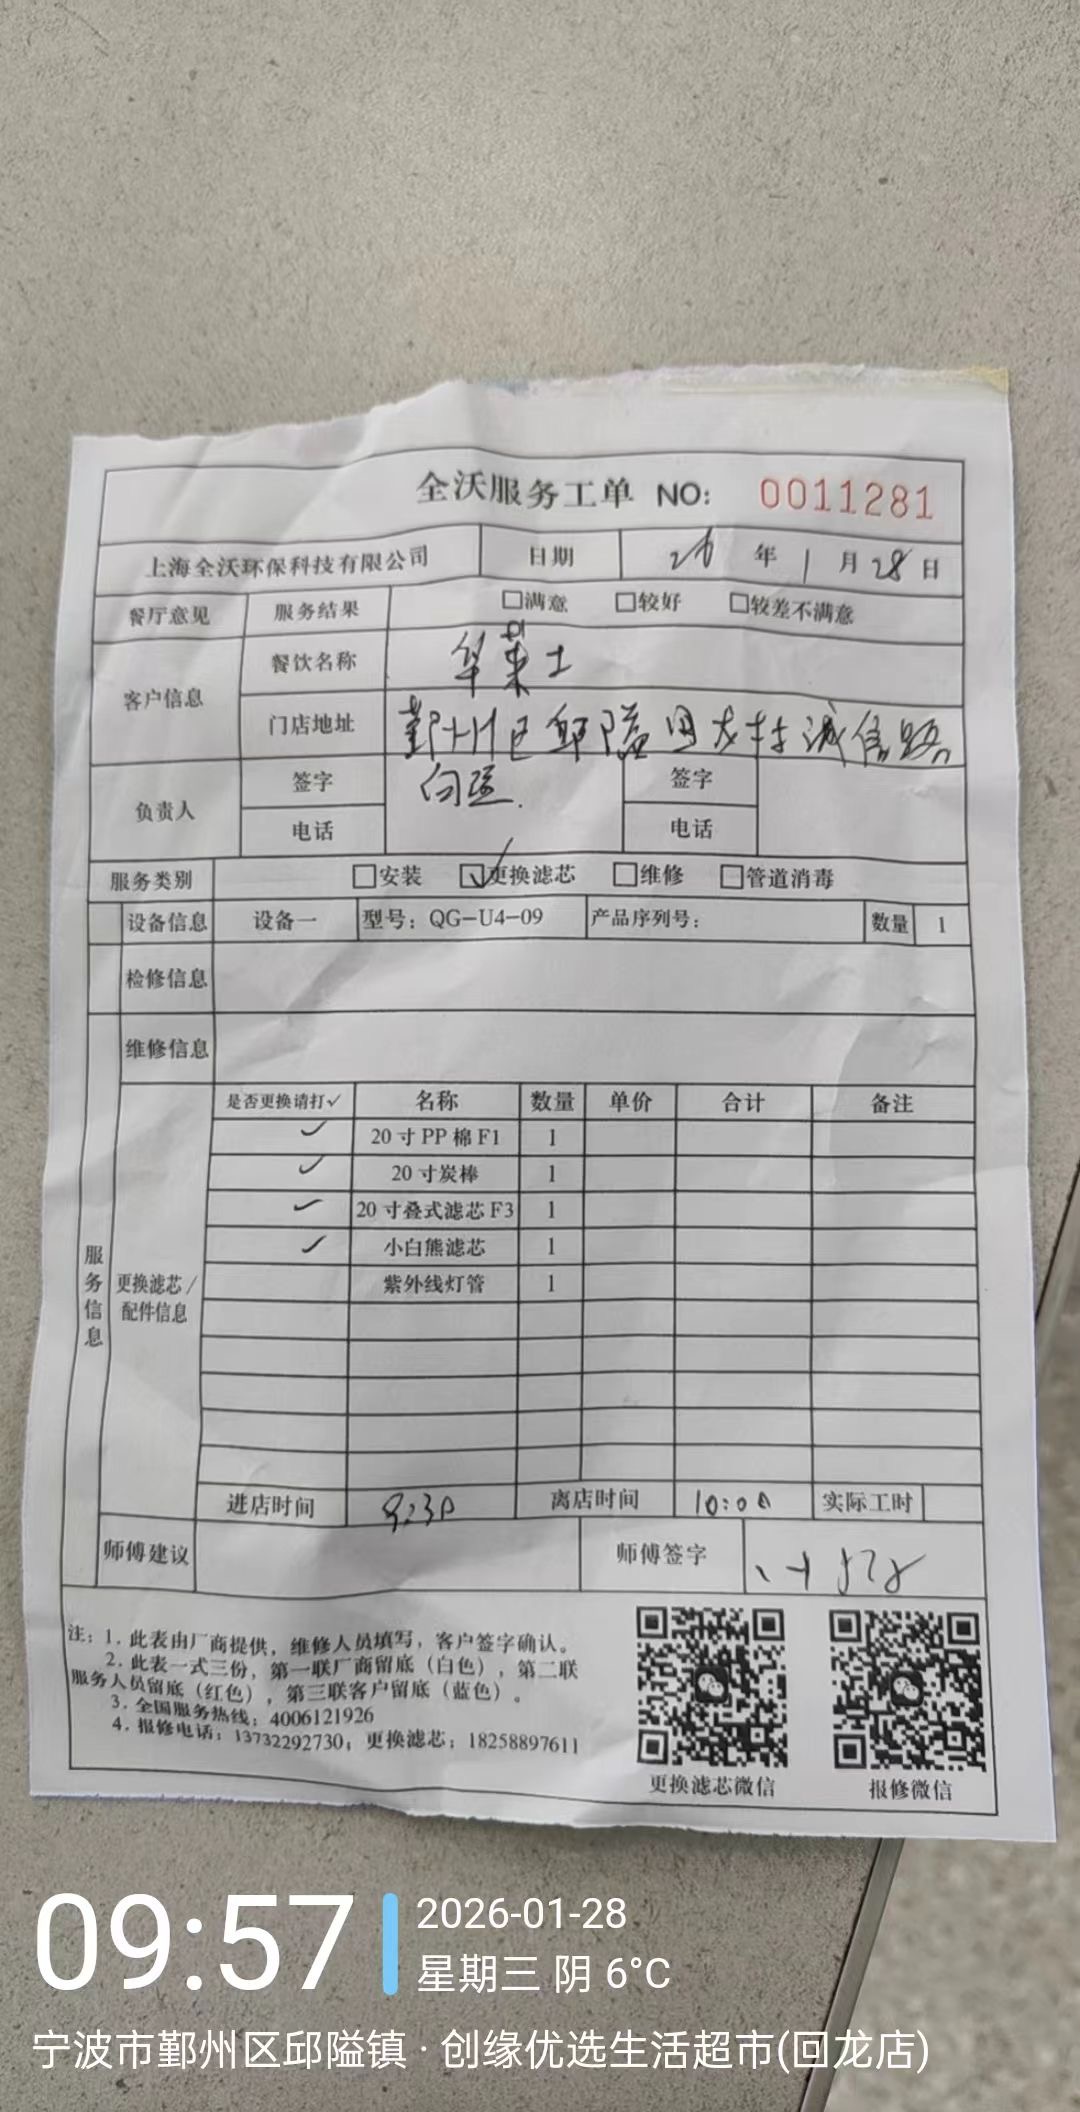 全沃服务工单 NO: 0011281
上海全沃环保科技有限公司 日期 26 年 1 月 28 日
餐厅意见 服务结果 □满意 □较好 □较差不满意
客户信息 餐饮名称 华莱士
门店地址 鄞州区邱隘回龙村诚信路
负责人 签字 签字
电话 电话
服务类别 □安装 ☑更换滤芯 □维修 □管道消毒
设备信息 设备一 型号：QG-U4-09 产品序列号： 数量 1
检修信息
维修信息
服务信息
更换滤芯/配件信息
是否更换请打✓ 名称 数量 单价 合计 备注
✓ 20寸PP棉F1 1
✓ 20寸炭棒 1
✓ 20寸叠式滤芯F3 1
✓ 小白熊滤芯 1
紫外线灯管 1
进店时间 9:30 离店时间 10:00 实际工时
师傅建议 师傅签字
注：1. 此表由厂商提供，维修人员填写，客户签字确认。
2. 此表一式三份，第一联厂商留底（白色），第二联
服务人员留底（红色），第三联客户留底（蓝色）。
3. 全国服务热线：4006121926
4. 报修电话：13732292730；更换滤芯：18258897611
更换滤芯微信 报修微信
09:57
2026-01-28
星期三 阴 6°C
宁波市鄞州区邱隘镇·创缘优选生活超市(回龙店)